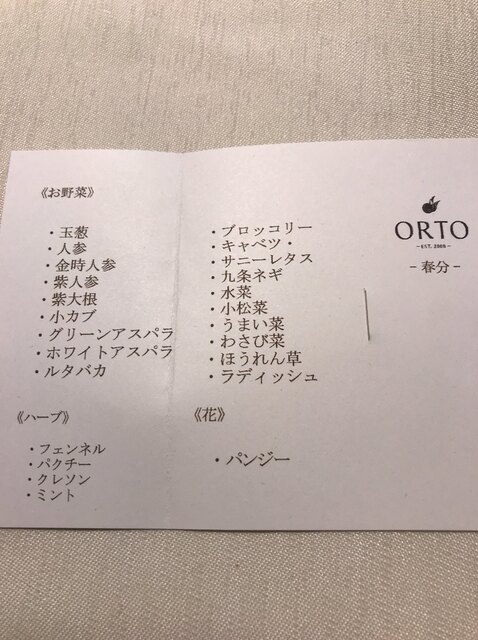 《お野菜》
・玉葱
・人参
・金時人参
・紫人参
・紫大根
・小カブ
・グリーンアスパラ
・ホワイトアスパラ
・ルタバカ
・ブロッコリー
・キャベツ・
・サニーレタス
・九条ネギ
・水菜
・小松菜
・うまい菜
・わさび菜
・ほうれん草
・ラディッシュ
《ハーブ》
・フェンネル
・パクチー
・クレソン
・ミント
《花》
・パンジー
ORTO
-EST. 2008-
- 春分 -